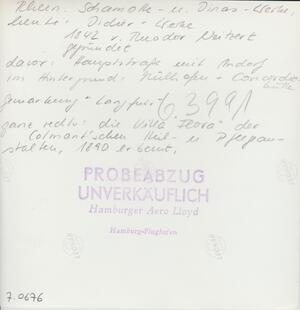 Rhein. Schamotte- u. Dinas-Werke,
heute: Didier-Werke
1872 v. Theodor Neizert
gegründet
davor: Hauptstraße mit
im Hintergrund: Mülhofen - Concordia-
hütte
Gemarkung
6399/1
ganz rechts: die Villa "Flora" der
Colmant'schen Heil- u. Pflegean-
stalten, 1890 erbaut.
PROBEABZUG
UNVERKÄUFLICH
Hamburger Aero Lloyd
Hamburg-Flughafen
7.0676